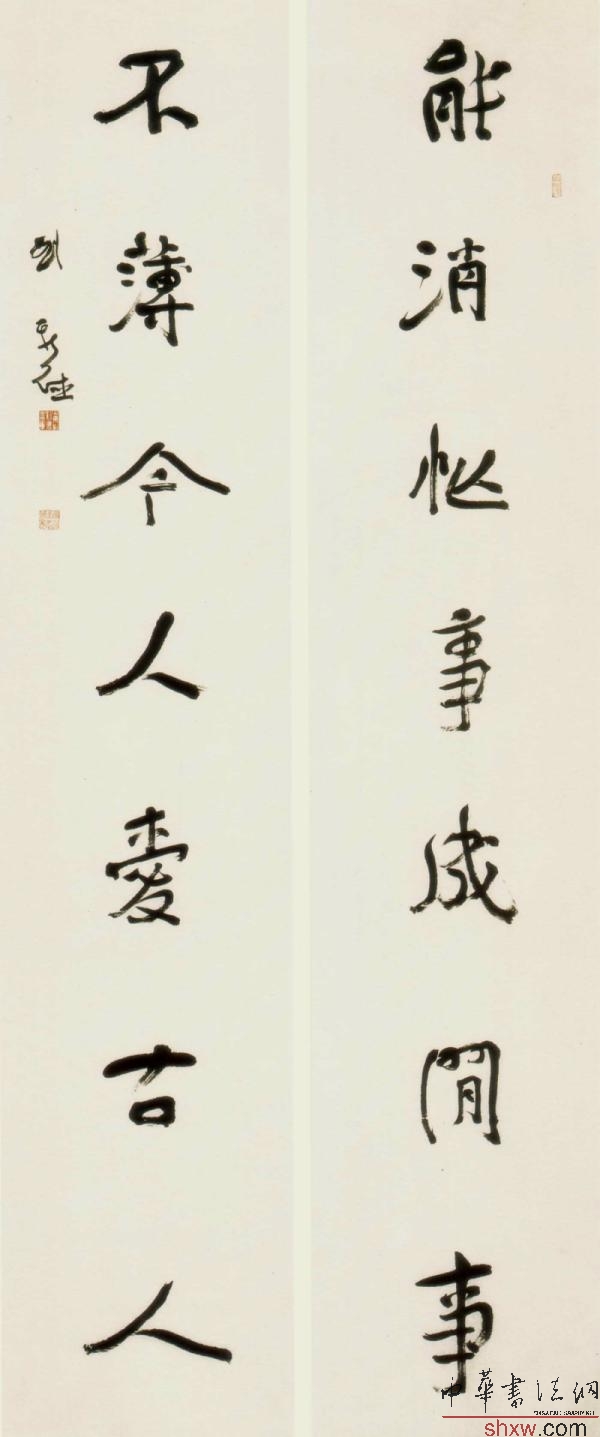 能消忙事成閒事
不薄今人愛古人
劉新德
中華書法網
shxw.com